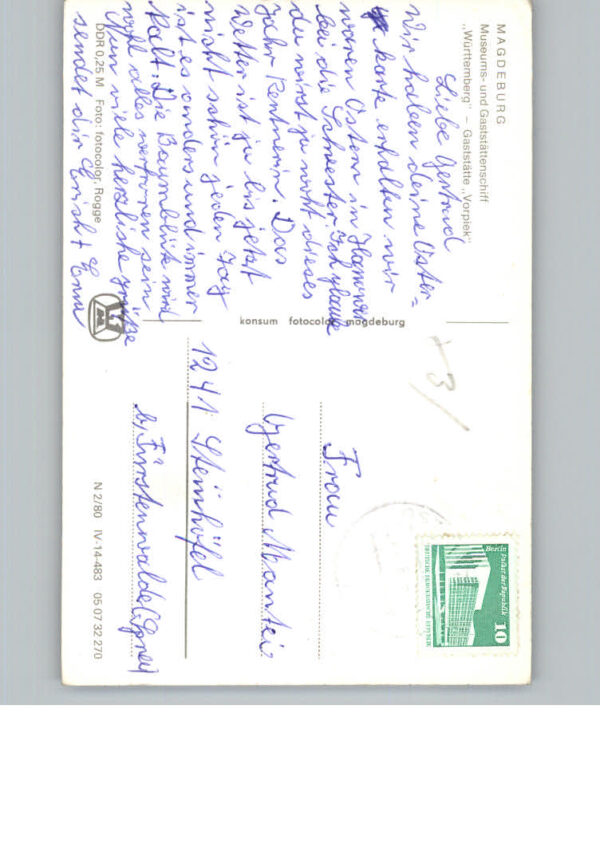 MAGDEBURG
Museums- und Gaststättenschiff
„Württemberg" – Gaststätte „Vorpiek"
Liebe Gertrud
Wir haben deine Oster=
karte erhalten wir
waren Ostern in Hannover
bei die Schwester. Ich glaube
du wirst ja nicht dieses
Jahr Rentnerin. Das
Wetter ist ja bis jetzt
nicht schön jeden Tag
ist es anders und immer
kalt. Die Baumblüte wird
wohl alles verfroren sein
Nun viele herzliche Grüße
sendet dir Erich + Erna
DDR 0,25 M Foto: fotocolor, Rogge
konsum fotocolor magdeburg
+3/
Berlin Palast der Republik
10
DEUTSCHE DEMOKRATISCHE REPUBLIK
Frau
Gertrud Mantei
1241 Steinhöfel
b, Fürstenwalde (Spree)
N 2/80 IV-14-483 05 07 32 270